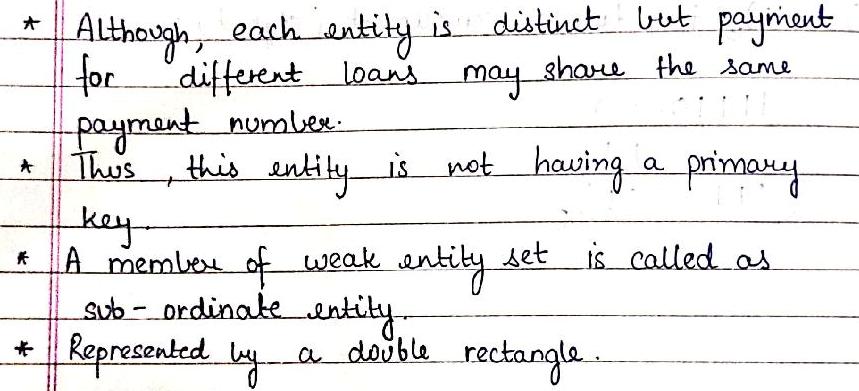 * Although, each entity is distinct but payment
for different loans may share the same
payment number.
* Thus, this entity is not having a primary
key.
* A member of weak entity set is called as
sub-ordinate entity.
* Represented by a double rectangle.